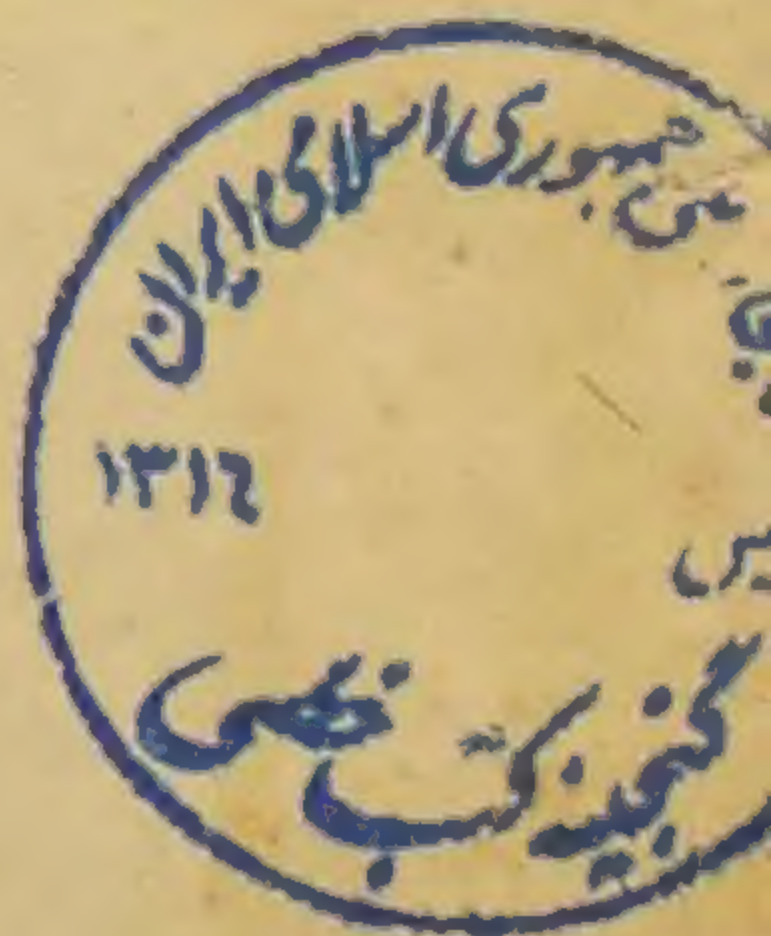 ملی جمهوری اسلامی ایران
۱۳۱۶
گنجینه کتب خطی